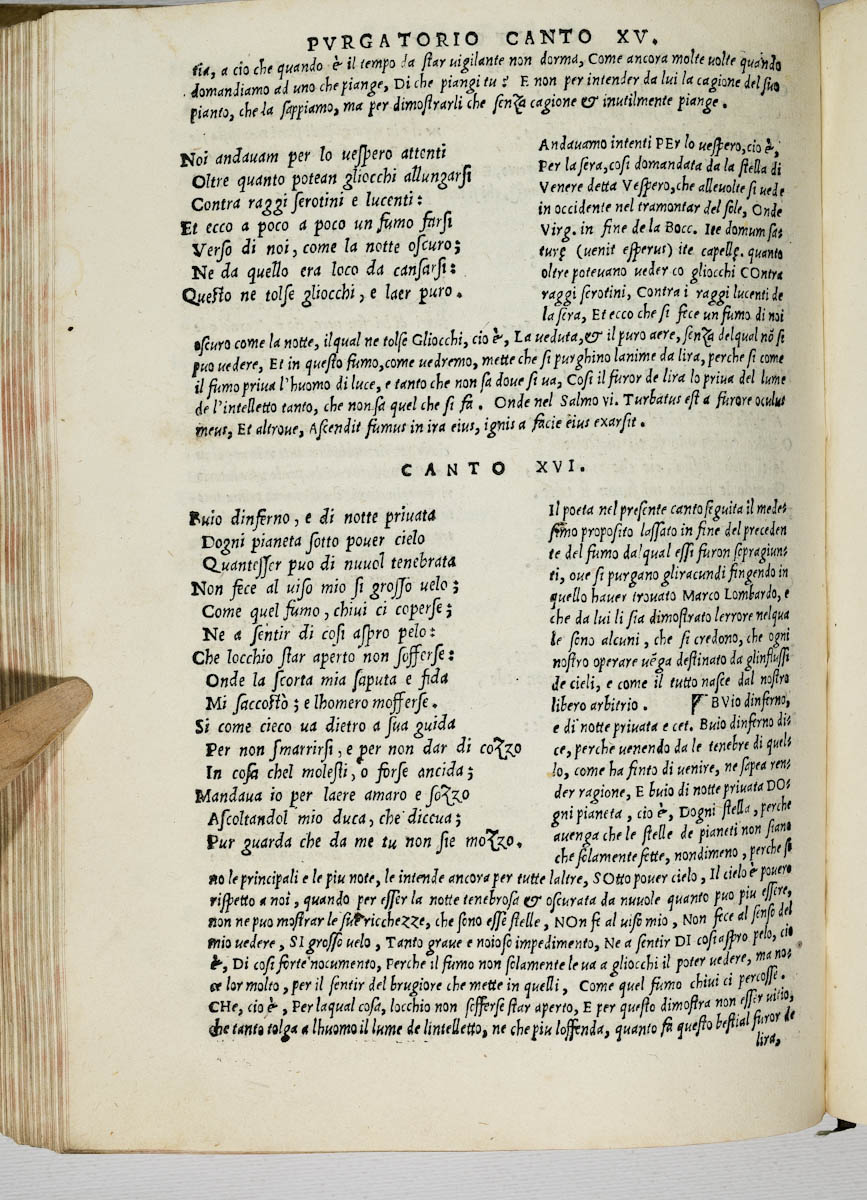 PVRGATORIO CANTO XV.
tia, a cio che quando è il tempo da star uigilante non dorma, Come ancora molte uolte quando
domandiamo ad uno che piange, Di che piangi tu? E non per intender da lui la cagione del suo
pianto, che la sappiamo, ma per dimostrarli che senza cagione & inutilmente piange.
Noi andauam per lo uespero attenti
Oltre quanto potean gliocchi allungarsi
Contra raggi serotini e lucenti:
Et ecco a poco a poco un fumo farsi
Verso di noi, come la notte oscuro;
Ne da quello era loco da cansarsi:
Questo ne tolse gliocchi, e laer puro.
Andauamo intenti PEr lo uespero, cio è,
Per la sera, cosi domandata da la stella di
Venere detta Vespero, che alleuolte si uede
in occidente nel tramontar del sole, Onde
Virg. in fine de la Bocc. Ite domum sa-
turę (uenit esperus) ite capellę. quanto
oltre poteuano ueder co gliocchi COntra
raggi serotini, Contra i raggi lucenti de
la sera, Et ecco che si fece un fumo di noi
oscuro come la notte, ilqual ne tolse Gliocchi, cio è, La ueduta, & il puro aere, senza delqual nō si
puo uedere, Et in questo fumo, come uedremo, mette che si purghino lanime da lira, perche si come
il fumo priua l'huomo di luce, e tanto che non sa doue si ua, Cosi il furor de lira lo priua del lume
de l'intelletto tanto, che non sa quel che si fa. Onde nel Salmo vi. Turbatus est a furore oculus
meus, Et altroue, Ascendit fumus in ira eius, ignis a facie eius exarsit.
CANTO XVI.
Buio dinferno, e di notte priuata
Dogni pianeta sotto pouer cielo
Quantesser puo di nuuol tenebrata
Non fece al uiso mio si grosso uelo;
Come quel fumo, chiui ci coperse;
Ne a sentir di cosi aspro pelo:
Che locchio star aperto non sofferse:
Onde la scorta mia saputa e fida
Mi saccostò; e lhomero mofferse.
Si come cieco ua dietro a sua guida
Per non smarrirsi, e per non dar di cozzo
In cosa chel molesti, o forse ancida;
Mandaua io per laere amaro e sozzo
Ascoltandol mio duca, che diceua;
Pur guarda che da me tu non sie mozzo.
Il poeta nel presente canto seguita il mede-
simo proposito lassato in fine del preceden
te del fumo dalqual essi furon sopragiun-
ti, oue si purgano gliracundi fingendo in
quello hauer trouato Marco Lombardo, e
che da lui li sia dimostrato lerrore nelqua
le sono alcuni, che si credono, che ogni
nostro operare uēga destinato da glinflussi
de cieli, e come il tutto nasce dal nostro
libero arbitrio. BVio dinferno,
e di notte priuata e cet. Buio dinferno di-
ce, perche uenendo da le tenebre di quel-
lo, come ha finto di uenire, ne sapea ren-
der ragione, E buio di notte priuata DO-
gni pianeta, cio è, Dogni stella, perche
auenga che le stelle de pianeti non siano
che solamente sette, nondimeno, perche so
no le principali e le piu note, le intende ancora per tutte laltre, SOtto pouer cielo, Il cielo è pouero
rispetto a noi, quando per esser la notte tenebrosa & oscurata da nuuole quanto puo piu essere,
non ne puo mostrar le sue ricchezze, che sono esse stelle, NOn fe al uiso mio, Non fece al senso del
mio uedere, SI grosso uelo, Tanto graue e noioso impedimento, Ne a sentir DI cosi aspro pelo, cio
è, Di cosi forte nocumento, Perche il fumo non solamente le ua a gliocchi il poter uedere, ma no-
ce lor molto, per il sentir del brugiore che mette in quelli, Come quel fumo chiui ci percosse.
CHe, cio è, Per laqual cosa, locchio non sofferse star aperto, E per questo dimostra non esser uitio,
che tanto tolga a lhuomo il lume de lintelletto, ne che piu loffenda, quanto fa questo bestial furor de
lira,